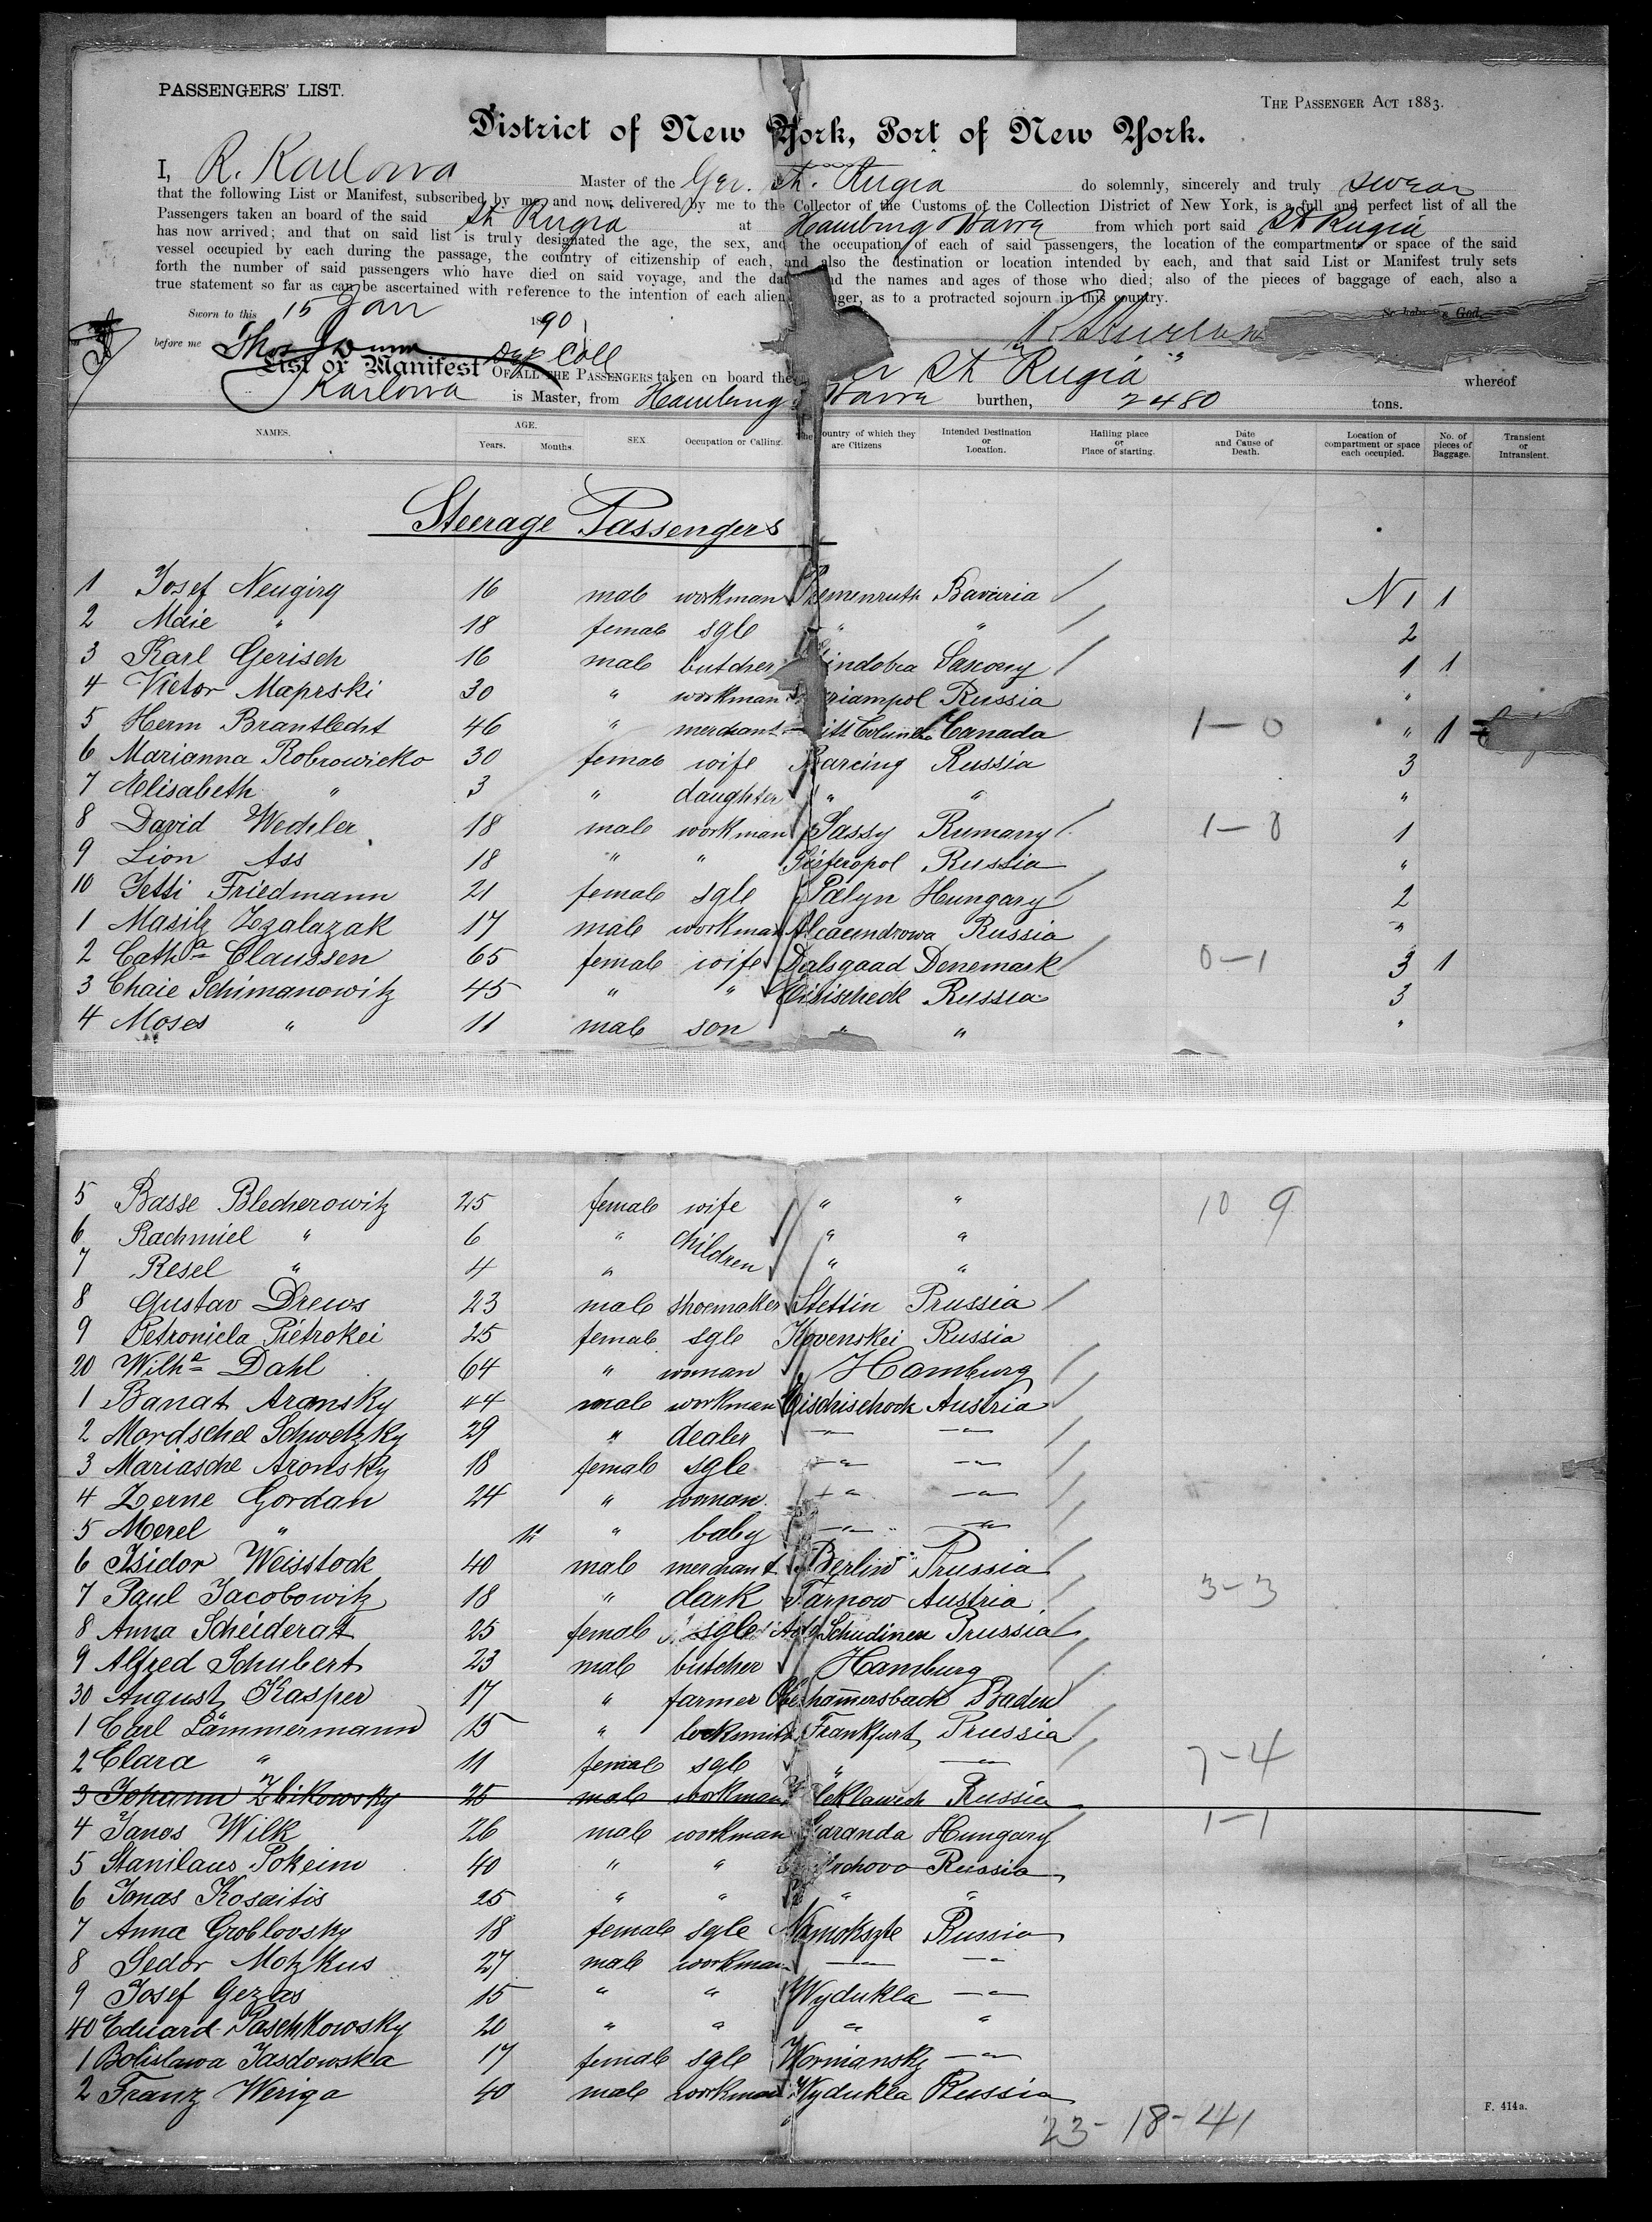 PASSENGERS' LIST.
THE PASSENGER ACT 1883.
District of New York, Port of New York.
I, R. Karlowa Master of the Ger. St. Rugia do solemnly, sincerely and truly swear
that the following List or Manifest, subscribed by me, and now delivered by me to the Collector of the Customs of the Collection District of New York, is a full and perfect list of all the
Passengers taken an board of the said St Rugia at Hamburg & Havre from which port said St Rugia
has now arrived; and that on said list is truly designated the age, the sex, and the occupation of each of said passengers, the location of the compartments or space of the said
vessel occupied by each during the passage, the country of citizenship of each, and also the destination or location intended by each, and that said List or Manifest truly sets
forth the number of said passengers who have died on said voyage, and the dat and the names and ages of those who died; also of the pieces of baggage of each, also a
true statement so far as can be ascertained with reference to the intention of each alien nger, as to a protracted sojourn in this country.
Sworn to this 15 Jan 1890
So help God.
before me Thos Dunn Dep Coll
List or Manifest OF ALL THE PASSENGERS taken on board the St Rugia whereof
Karlowa is Master, from Hamburg Havre burthen, 2480 tons.
NAMES. AGE. Years. Months. SEX. Occupation or Calling. The Country of which they are Citizens Intended Destination or Location. Hailing place or Place of starting. Date and Cause of Death. Location of compartment or space each occupied. No. of pieces of Baggage. Transient or Intransient.
Steerage Passengers
1 Josef Neugirg 16 male workman Premenruth Bavaria N 1 1
2 Maie " 18 female sgle " " 2
3 Karl Gerisch 16 male butcher indobra Saxony 1 1
4 Victor Maprski 30 " workman riampol Russia "
5 Herm Brantlecht 46 " merchant Canada 1-0 " 1
6 Marianna Robrowicko 30 female wife Rarcing Russia 3
7 Aelisabeth " 3 " daughter " " "
8 David Wechler 18 male workman Jassy Rumany 1-0 1
9 Lion Ass 18 " " Russia "
10 Jetti Friedmann 21 female sgle Palyn Hungary 2
1 Masilz Zzalazak 17 male workman Alcaendrowa Russia "
2 Cathª Claussen 65 female wife Dalsgaad Denemark 0-1 3 1
3 Chaie Schimanowitz 45 " " Eisischeck Russia 3
4 Moses " 11 male son " " "
5 Basse Blecherowitz 25 female wife " " 10 9
6 Rachmiel " 6 " children " "
7 Resel " 4 " " "
8 Gustav Drews 23 male shoemaker Stettin Prussia
9 Petroniela Pietrokei 25 female sgle Kovenskei Russia
20 Wilhª Dahl 64 " woman Hamburg
1 Banat Aransky 44 male workman Eischischock Austria
2 Mordschel Schwetzky 29 " dealer -"- -"-
3 Mariasche Aronsky 18 female sgle -"- -"-
4 Zerne Gordan 24 " woman -"- -"-
5 Merel " 11 " baby -"- -"-
6 Isidor Weisstock 40 male merchant Berlin Prussia
7 Paul Jacobowitz 18 " clark Tarnow Austria 3-3
8 Anna Scheiderat 25 female sgle Schudinen Prussia
9 Alfred Schubert 23 male butcher Hamburg
30 August Kasper 17 " farmer Oberhammersbach Baden
1 Carl Lämmermann 15 " locksmith Frankfurt Prussia
2 Clara " 11 female sgle " -"- 7-4
3 Johann Zbikowsky 25 male workman Russia
4 Janos Wilk 26 male workman Garanda Hungary 1-1
5 Stanilaus Pokeim 40 " " Russia
6 Jonas Kosaitis 25 " " " "
7 Anna Groblovsky 18 female sgle Russia
8 Fedor Motzkus 27 male workman -"- -"-
9 Josef Gezas 15 " " Wydukla -"-
40 Eduard Paschkowsky 20 " " " "
1 Bolislawa Jasdowska 17 female sgle Worniansky -"-
2 Franz Weriga 40 male workman Wydukla Russia
23-18-41
F. 414a.